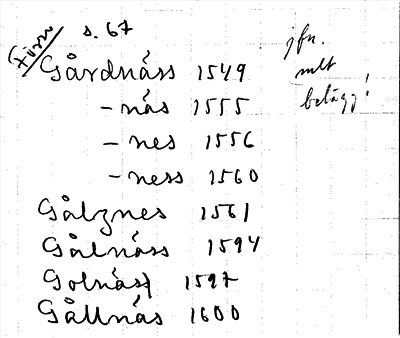 Försv s. 67
Gårdnäss 1549
- näs 1555
- nes 1556
- ness 1560
Gålznes 1561
Gålnäss 1594
Golnäs 1597
Gållnäs 1600
jfr.
mlt
belägg!